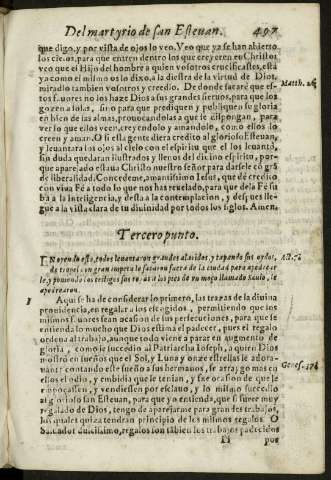 Del martyrio de san Esteuan. 497
que digo, y por vista de ojos lo veo. Veo que ya se han abierto
los cielos, para que entren dentro los que creyeren en Christo:
veo que el Hijo del hombre a quien vosotros crucificastes, està
ya como el mismo os lo dixo, a la diestra de la virtud de Dios,
miradlo tambien vosotros y creedlo. De donde sacarè que es-
Matth. 26
tos fauores no los haze Dios a sus grandes sieruos, para que los
gozen a solas, sino para que prediquen y publiquen su gloria
en bien de las almas, prouocandolas a que se dispongan, para
ver lo que ellos veen, creyendolo y amandolo, como ellos lo
creen y aman. O si esta gente diera credito al glorioso Esteuan,
y leuantara los ojos al cielo con el espiritu que el los leuantò,
sin duda quedaran ilustrados y llenos del diuino espiritu, por-
que aparejado estaua Christo nuestro señor para darsele con grã
de liberalidad. Concedeme, amantissimo Iesus, que dè credito
con viua Fè a todo lo que nos has reuelado, para que dela Fè su
ba a la inteligencia, y desta a la contemplacion, y despues lle-
gue a la vista clara de tu diuinidad por todos los siglos. Amen.
Tercero punto.
Oyendo esto, todos leuantaron grandes alaridos, y tapando sus oydos,
Act. 7.
de tropel con gran impetu le sacaron fuera de la ciudad para apedrear
le, y poniendo los testigos sus ropas a los pies de un moço llamado Saulo, le
apedrearon.
Aqui se ha de considerar lo primero, las trazas de la diuina
prouidencia, en regalar a los escogidos, permitiendo que los
mismos fauores sean ocasion de sus persecuciones, para que se
entienda lo mucho que Dios estima el padecer, pues el regalo
ordena al trabajo, aunque todo viene a parar en augmento de
gloria, como le sucedio al Patriarcha Ioseph, a quien Dios
mostrò en sueños que el Sol, y Luna y onze estrellas le adora-
Genes. 37.
uan: y contando este sueño a sus hermanos, se arraygò mas en
ellos el odio, y embidia que le tenian, y fue ocasion de que le
empoçassen, y vendiessen por esclauo, y lo mismo sucedio
al glorioso san Esteuan, para que yo entienda, que si fuere muy
regalado de Dios, tengo de aparejarme para grandes trabajos,
los quales quiza tendran principio de los mismos regalos. O
Saluador dulcissimo, regalos son tãbien los trabajos padecidos
Ii por